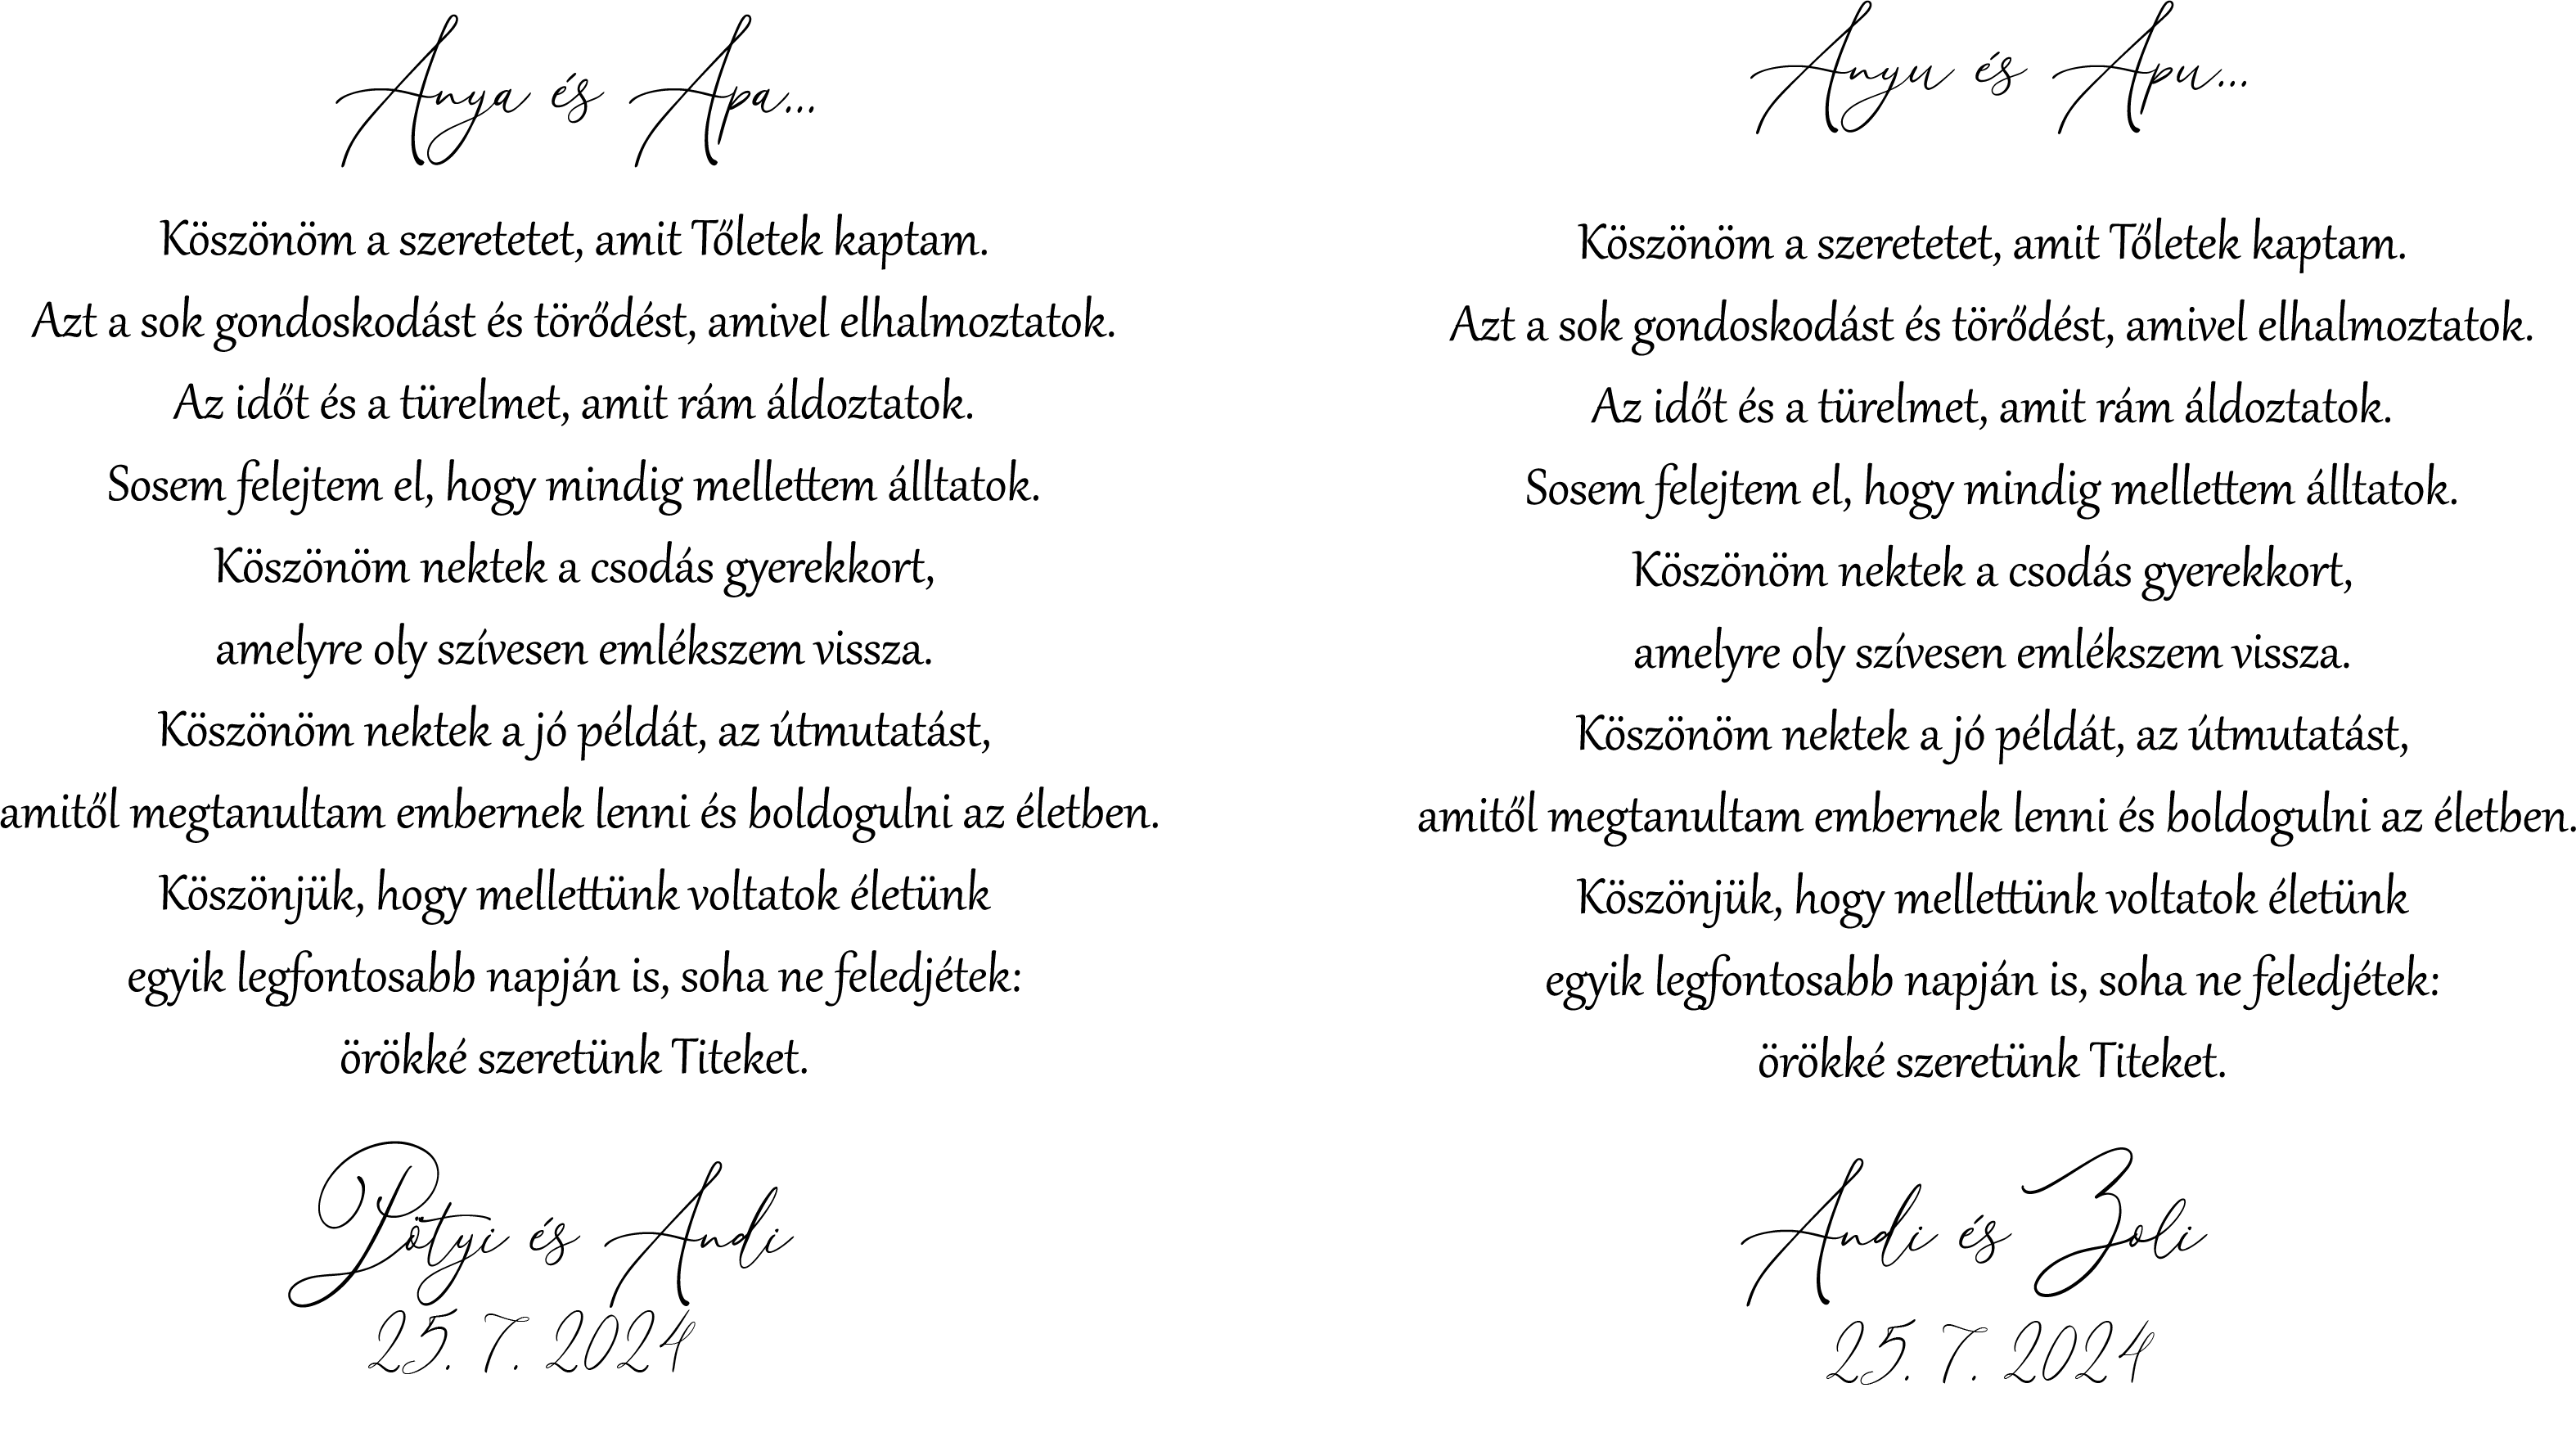 Anya és Apa...
Köszönöm a szeretetet, amit Tőletek kaptam.
Azt a sok gondoskodást és törődést, amivel elhalmoztatok.
Az időt és a türelmet, amit rám áldoztatok.
Sosem felejtem el, hogy mindig mellettem álltatok.
Köszönöm nektek a csodás gyerekkort,
amelyre oly szívesen emlékszem vissza.
Köszönöm nektek a jó példát, az útmutatást,
amitől megtanultam embernek lenni és boldogulni az életben.
Köszönjük, hogy mellettünk voltatok életünk
egyik legfontosabb napján is, soha ne feledjétek:
örökké szeretünk Titeket.
Pötyi és Andi
25. 7. 2024
Anyu és Apu...
Köszönöm a szeretetet, amit Tőletek kaptam.
Azt a sok gondoskodást és törődést, amivel elhalmoztatok.
Az időt és a türelmet, amit rám áldoztatok.
Sosem felejtem el, hogy mindig mellettem álltatok.
Köszönöm nektek a csodás gyerekkort,
amelyre oly szívesen emlékszem vissza.
Köszönöm nektek a jó példát, az útmutatást,
amitől megtanultam embernek lenni és boldogulni az életben.
Köszönjük, hogy mellettünk voltatok életünk
egyik legfontosabb napján is, soha ne feledjétek:
örökké szeretünk Titeket.
Andi és Zoli
25. 7. 2024